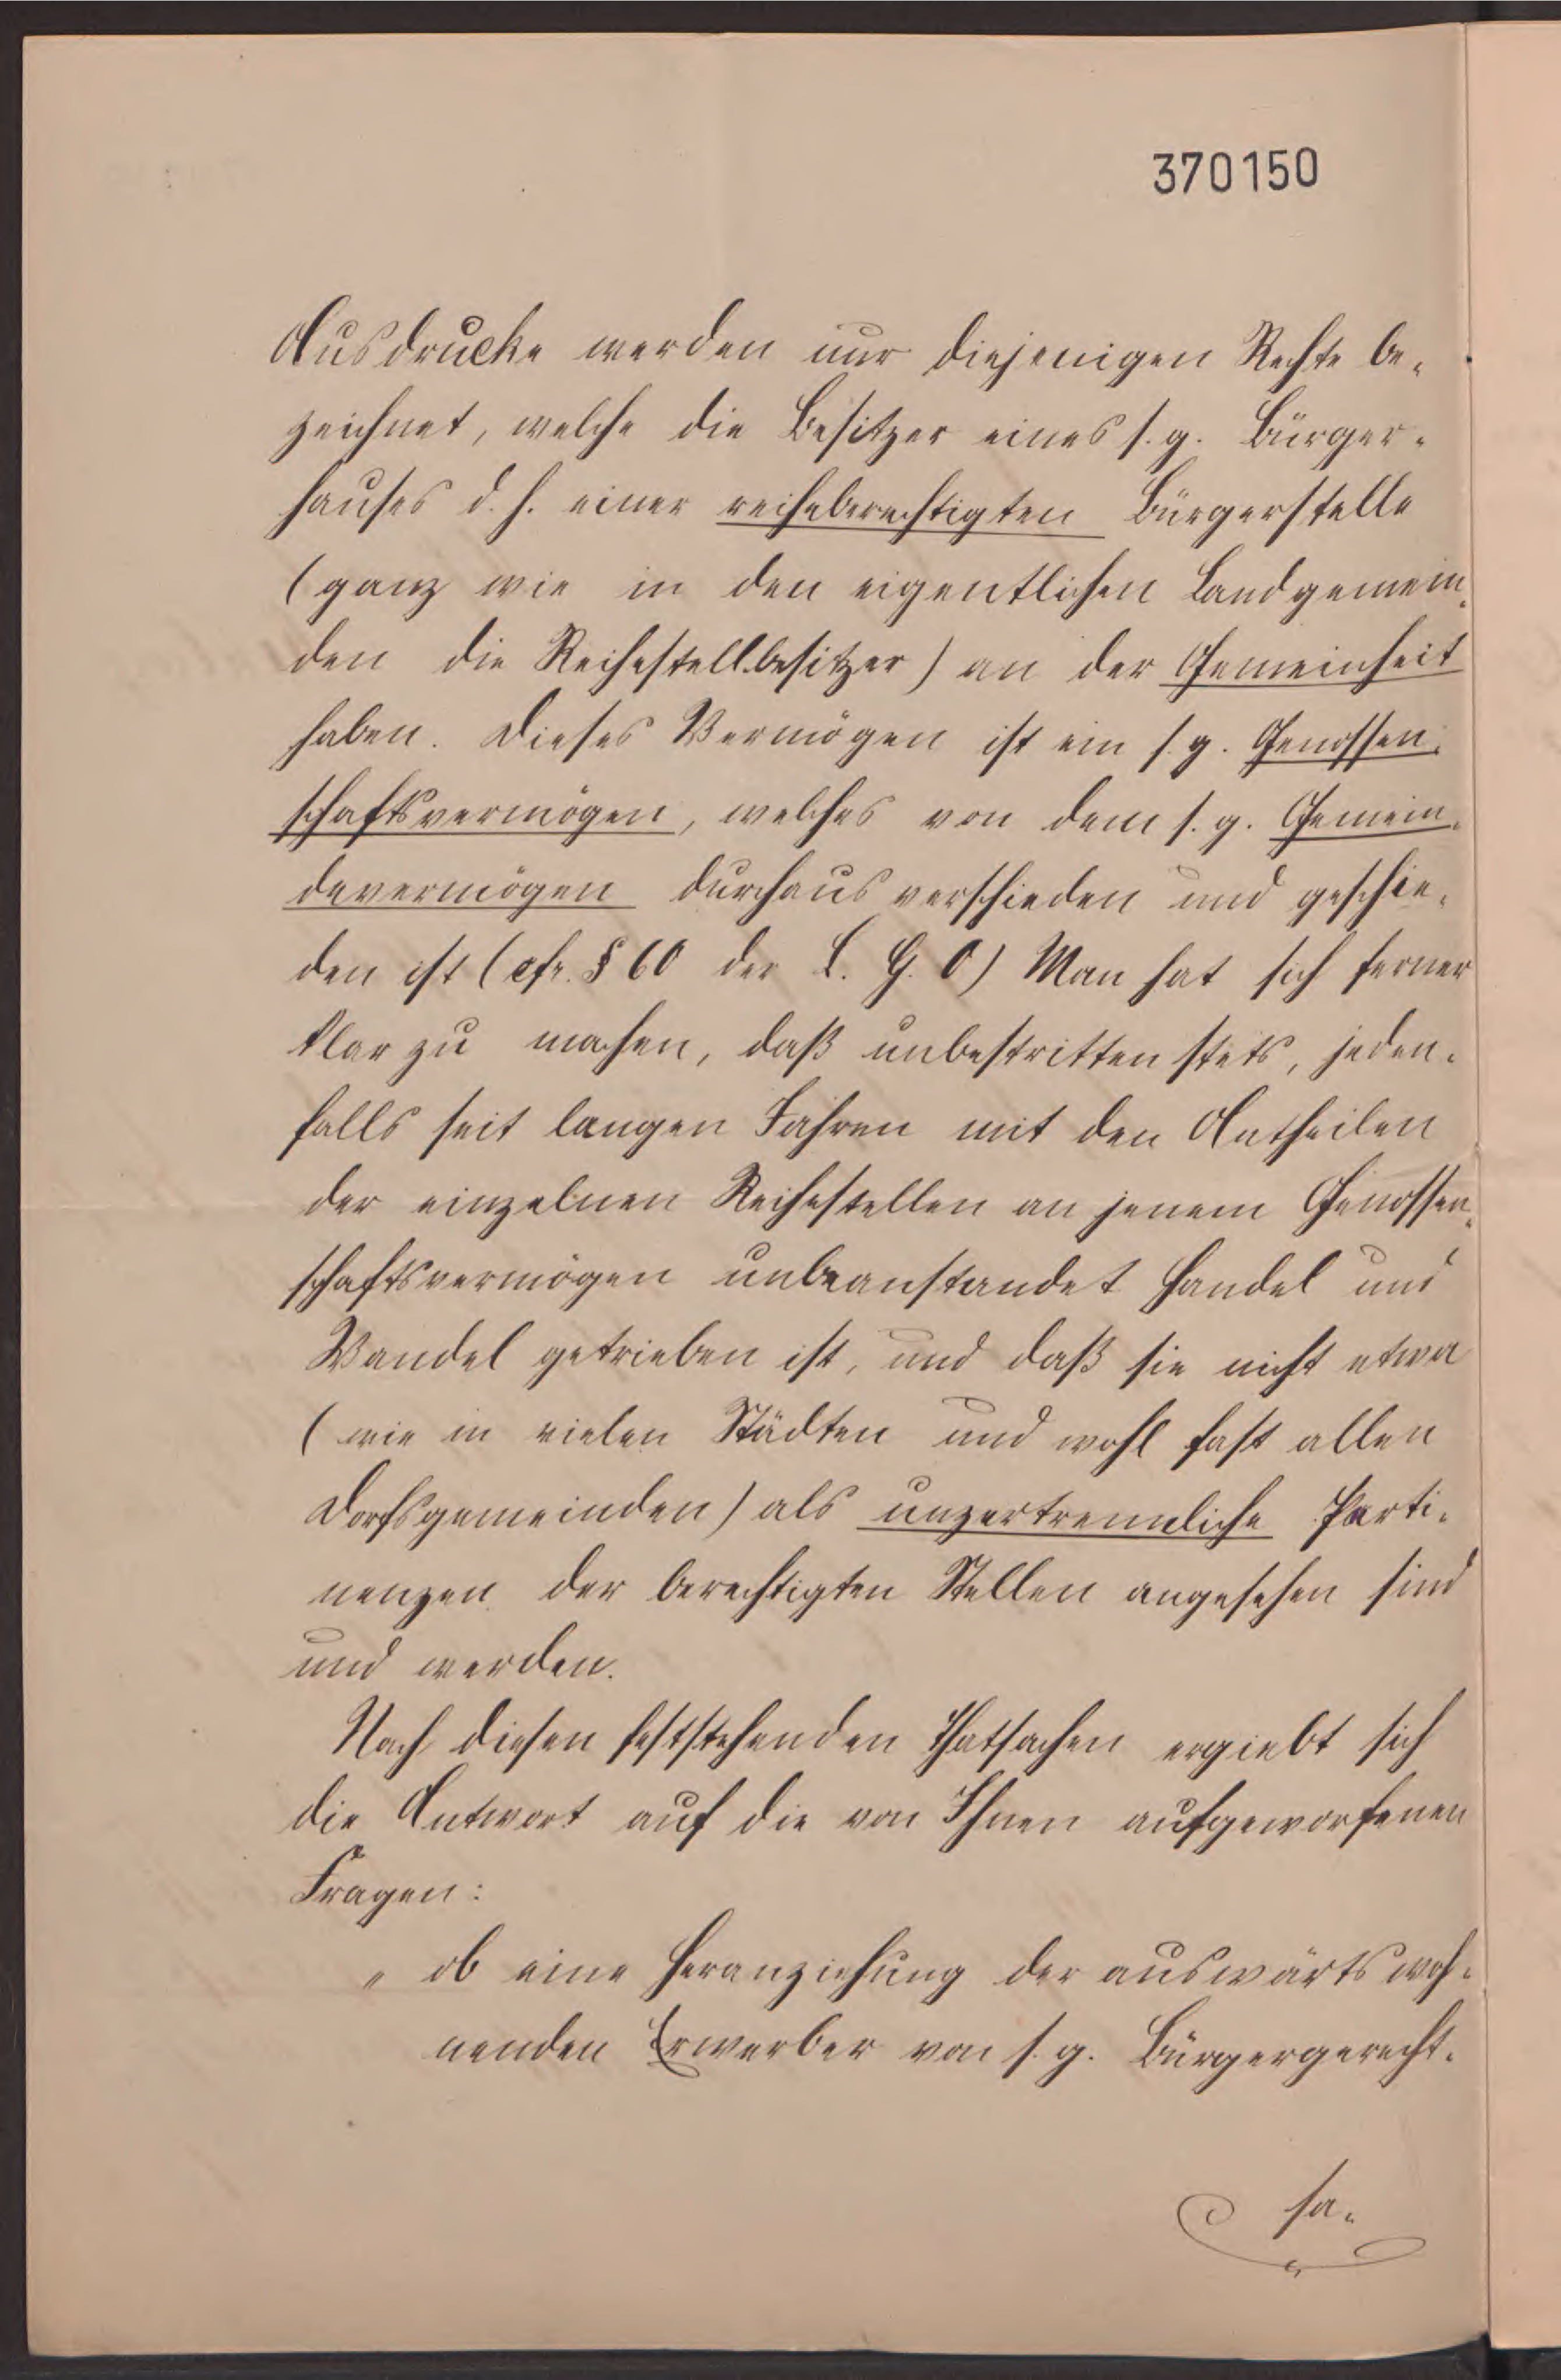 370150
Ausdrucke werden nur diejenigen Rechte be-
zeichnet, welche die Besitzer eines s. g. Bürger-
hauses d. h. einer reiheberechtigten Bürgerstelle
(ganz wie in den eigentlichen Landgemein-
den die Reihestellbesitzer) an der Gemeinheit
haben. Dieses Vermögen ist ein s. g. Genossen-
schaftsvermögen, welches von dem s. g. Gemein-
devermögen durchaus verschieden und geschie-
den ist (cfr. § 60 der L. G. O) Man hat sich ferner
klar zu machen, daß unbestritten stets, jeden-
falls seit langen Jahren mit den Antheilen
der einzelnen Reihestellen an jenem Genossen-
schaftsvermögen unbeanstandet Handel und
Wandel getrieben ist, und daß sie nicht etwa
(wie in vielen Städten und wohl fast allen
Dorfsgemeinden) als unzertrennliche Perti-
nenzen der berechtigten Stellen angesehen sind
und werden.
Nach diesen feststehenden Thatsachen ergiebt sich
die Antwort auf die von Ihnen aufgeworfenen
Fragen:
„ ob eine Heranziehung der auswärts woh-
nenden Erwerber von s. g. Bürgergerecht-
sa-